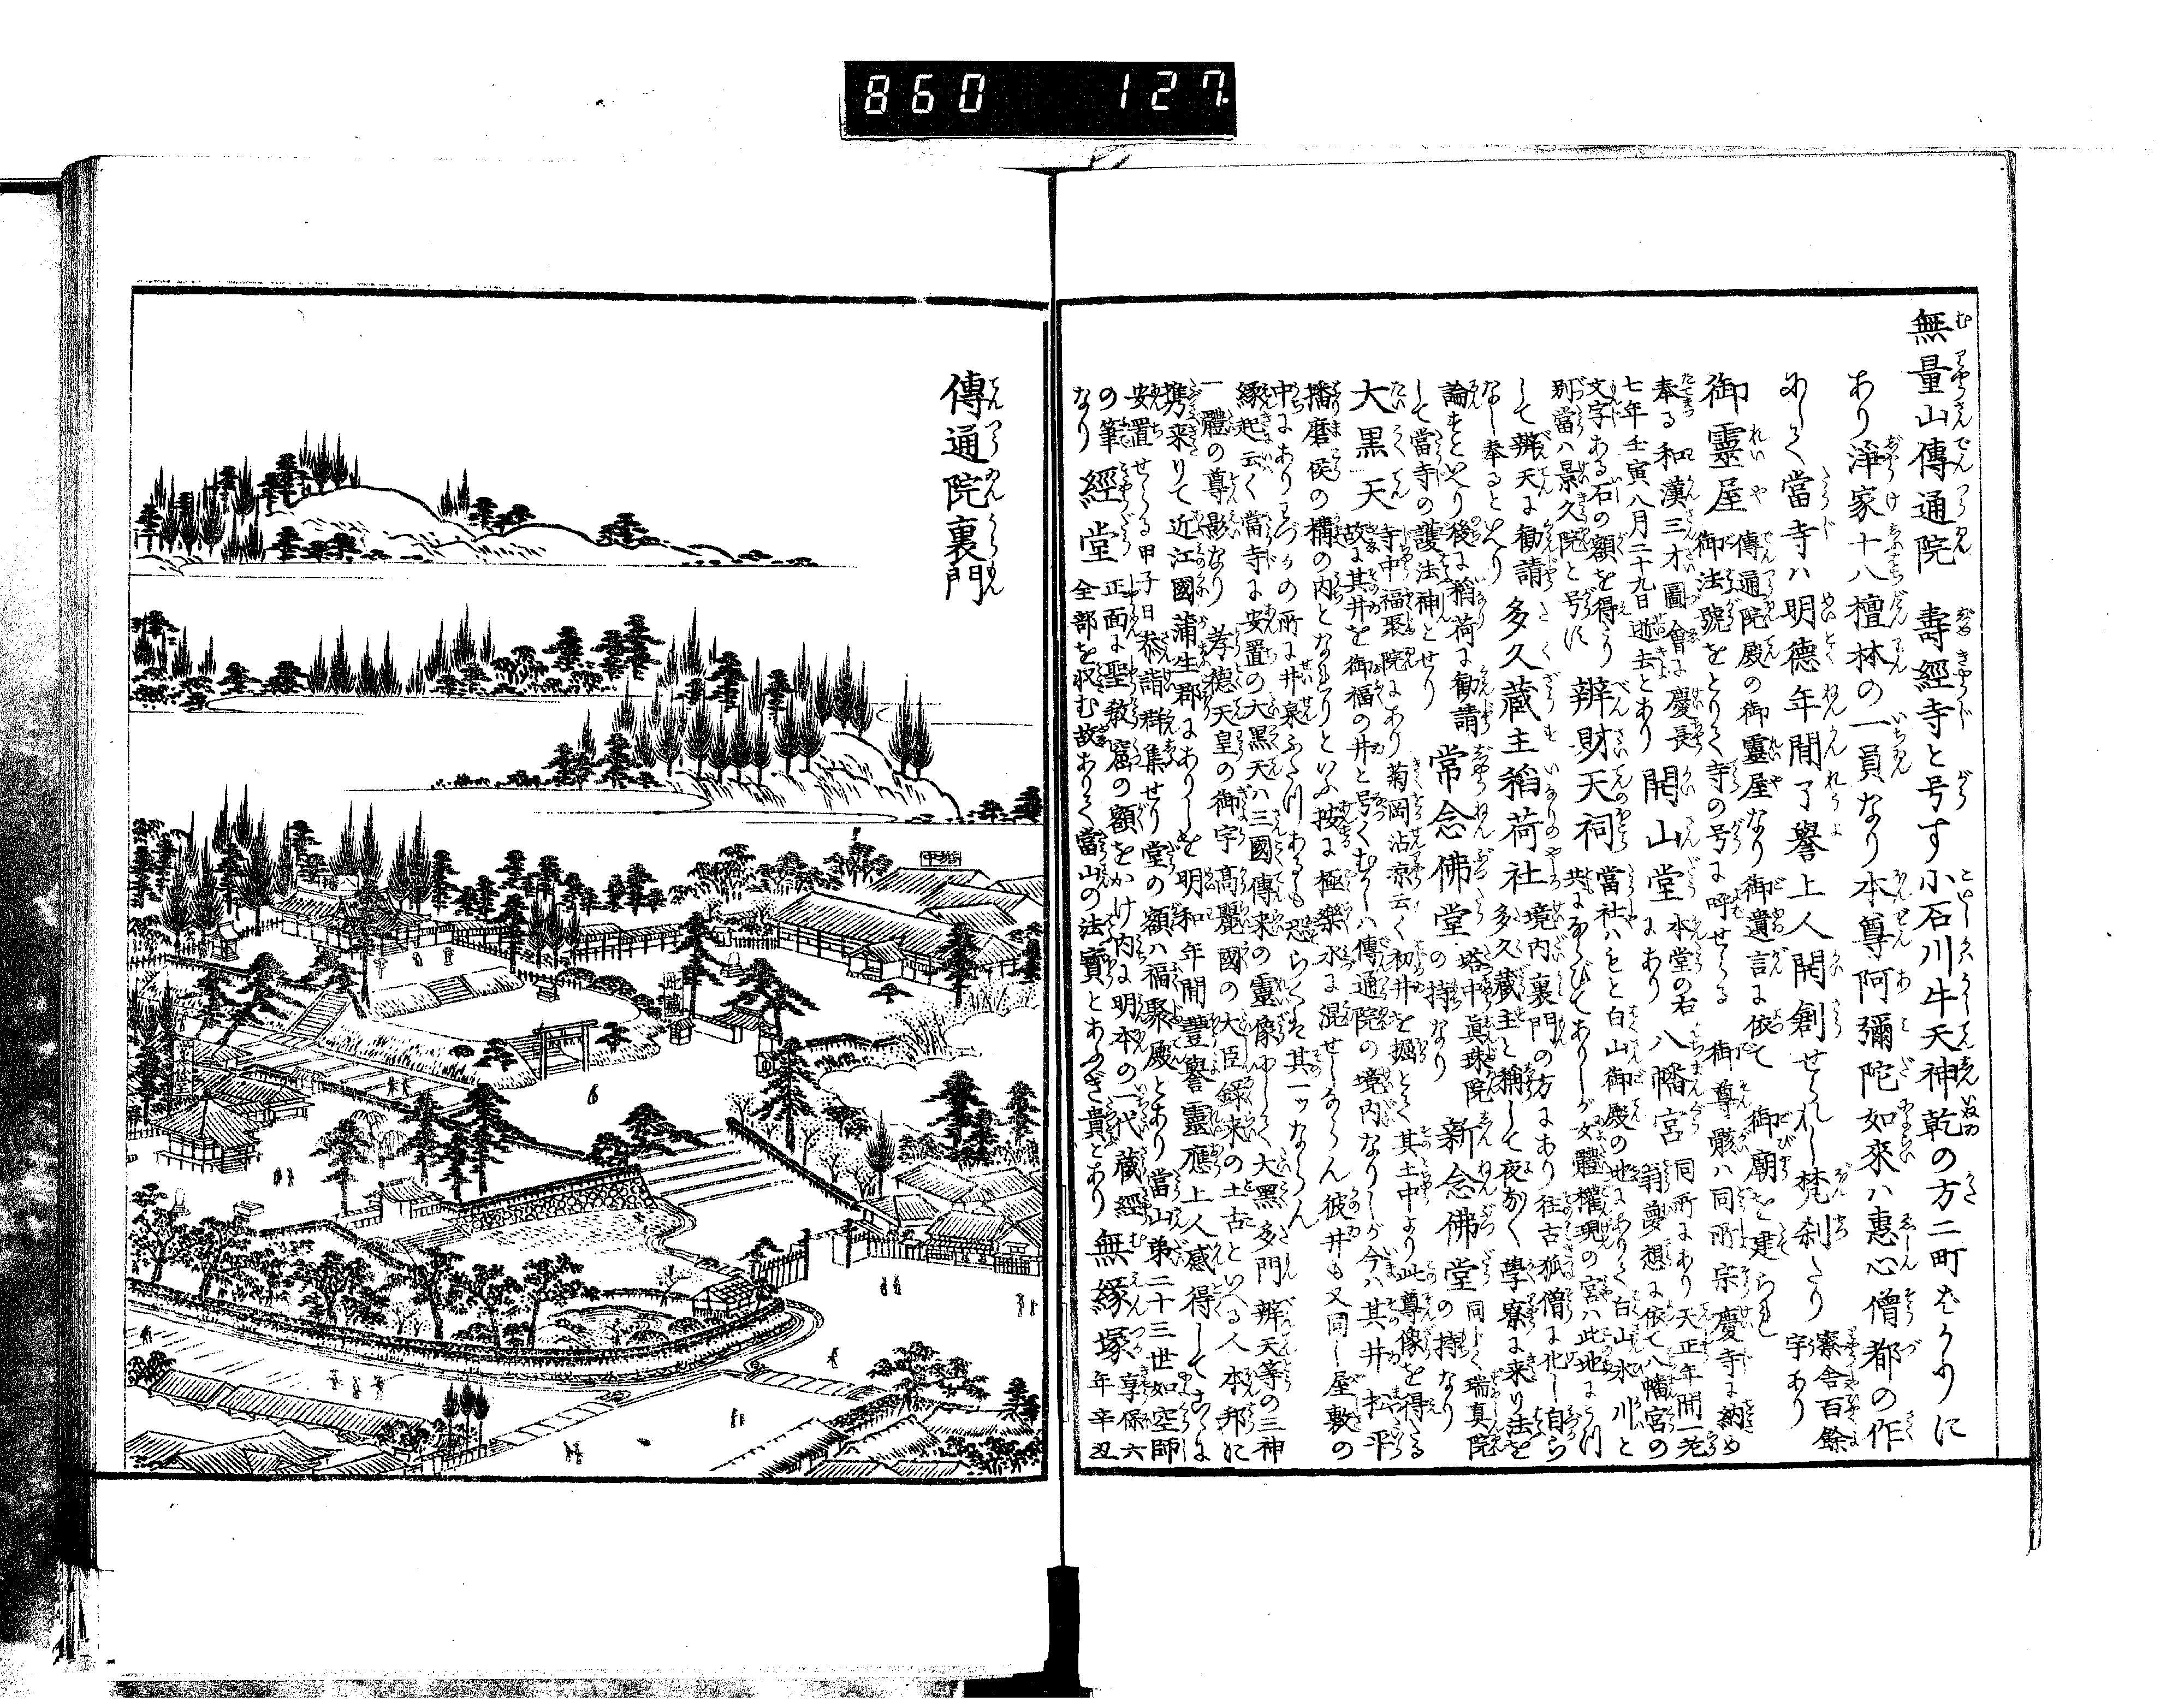 860 127
無量山傳通院 壽經寺と号す小石川牛天神乾の方二町ばかりに
あり淨家十八檀林の一員なり本尊阿彌陀如來ハ惠心僧都の作
にして當寺ハ明德年間了譽上人開創せられし梵刹たり 寮舎百餘宇あり
御靈屋 傳通院殿の御靈屋なり御遺言に依て 御廟を建られ
御法號をとりて寺の号に呼せらる 御尊骸ハ同所宗慶寺に納め
奉る和漢三才圖會に慶長
七年壬寅八月二十九日逝去とあり
開山堂 本堂の右にあり
八幡宮 同所にあり天正年間一老翁夢想に依て八幡宮の
文字ある石の額を得たり
別當ハ景久院と号す
辨財天祠 當社ハもと白山御殿の地にありて白山氷川と
共にならびてありしが女體權現の宮ハ此地にうつ
して辨天に勸請
なし奉るといへり
多久蔵主稻荷社 境内裏門の方にあり往古狐僧に化し自ら
多久蔵主と稱して夜なく學寮に来り法を
論ずといへり後に稻荷に勸請
して當寺の護法神とせり
常念佛堂 塔中眞珠院の持なり
新念佛堂 同じく瑞真院の持なり
大黒天 寺中福聚院にあり 菊岡沾凉云く初井を掘とて其土中より此尊像を得たる
故に其井を御福の井と号くむかしハ傳通院の境内なりしが今ハ其井松平
播磨侯の構の内となれりといふ按に極樂水に混せしならん彼井も又同し屋敷の
中にありわづかの所に井泉ふたつあるも恐らくハ其一ッならん
縁起云く當寺に安置の大黒天ハ三國傳来の靈像にして大黒多門辨天等の三神
一體の尊影なり 孝德天皇の御宇髙麗國の大臣録来の土古といへる人本邦に
携来りて近江國蒲生郡にありしを明和年間豊譽靈應上人感得してこゝに
安置せらる甲子日参詣群集せり堂の額ハ福聚殿とあり當山第二十三世如空師
の筆なり
經堂 正面に聖教窟の額をかけ内に明本の一代蔵經
全部を収む故ありて當山の法寶とあふぎ貴とあり
無縁塚 享保六年辛丑
傳通院裏門